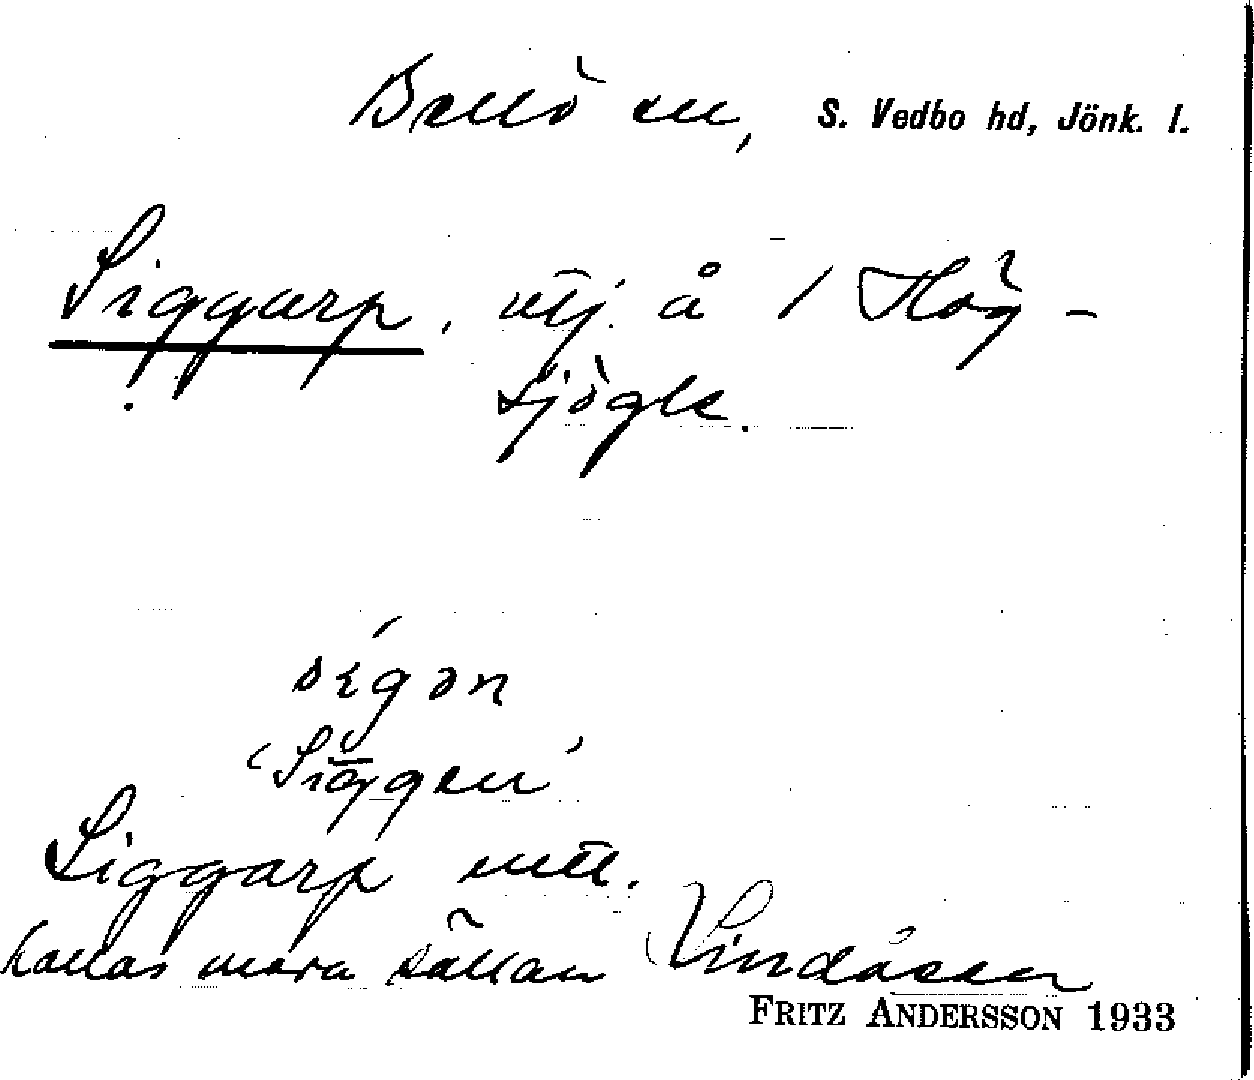 Bellö sn, S. Vedbo hd, Jönk. l.
Siggarp, utj. å 1 Hög-
sjögle.
sigən
'Siggen'
Siggarp utt.
kallas mera sällan Lindåsen
FRITZ ANDERSSON 1933